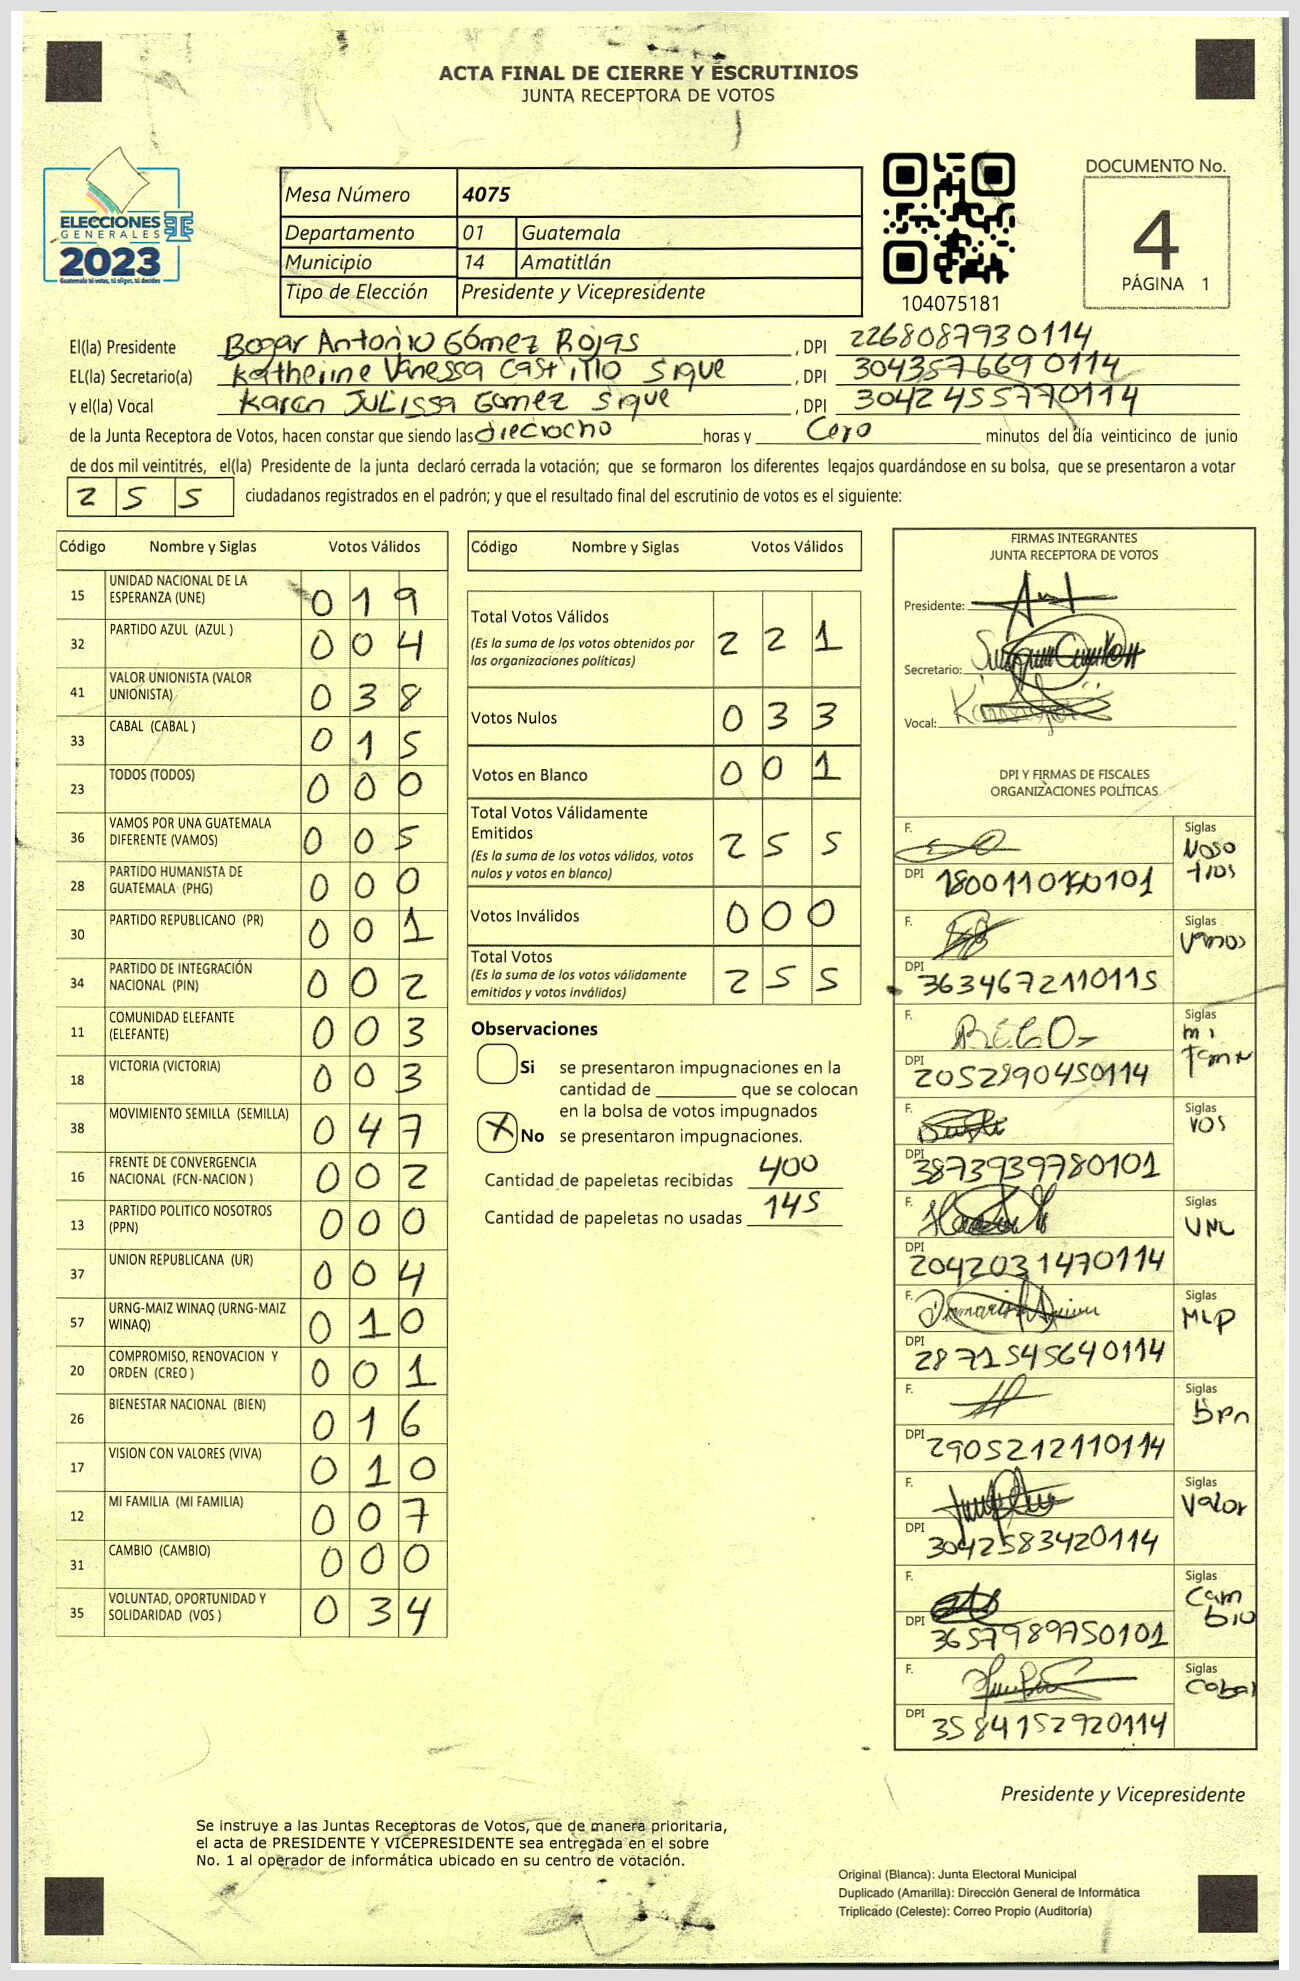 ACTA FINAL DE CIERRE Y ESCRUTINIOS
JUNTA RECEPTORA DE VOTOS
ELECCIONES
GENERALES
2023
Guatemala tú votas, tú eliges, tú decides
Mesa Número 4075
Departamento 01 Guatemala
Municipio 14 Amatitlán
Tipo de Elección Presidente y Vicepresidente
104075181
DOCUMENTO No.
4
PÁGINA 1
El(la) Presidente Bogar Antonio Gómez Rojas , DPI 2268087930114
EL(la) Secretario(a) Katherine Vanessa Castillo Sique , DPI 3043576690114
y el(la) Vocal Karen Julissa Gomez Sique , DPI 3042455770114
de la Junta Receptora de Votos, hacen constar que siendo las dieciocho horas y Cero minutos del día veinticinco de junio
de dos mil veintitrés, el(la) Presidente de la junta declaró cerrada la votación; que se formaron los diferentes legajos guardándose en su bolsa, que se presentaron a votar
2 5 5 ciudadanos registrados en el padrón; y que el resultado final del escrutinio de votos es el siguiente:
Código Nombre y Siglas Votos Válidos
15 UNIDAD NACIONAL DE LA ESPERANZA (UNE) 0 1 9
32 PARTIDO AZUL (AZUL ) 0 0 4
41 VALOR UNIONISTA (VALOR UNIONISTA) 0 3 8
33 CABAL (CABAL ) 0 1 5
23 TODOS (TODOS) 0 0 0
36 VAMOS POR UNA GUATEMALA DIFERENTE (VAMOS) 0 0 5
28 PARTIDO HUMANISTA DE GUATEMALA (PHG) 0 0 0
30 PARTIDO REPUBLICANO (PR) 0 0 1
34 PARTIDO DE INTEGRACIÓN NACIONAL (PIN) 0 0 2
11 COMUNIDAD ELEFANTE (ELEFANTE) 0 0 3
18 VICTORIA (VICTORIA) 0 0 3
38 MOVIMIENTO SEMILLA (SEMILLA) 0 4 7
16 FRENTE DE CONVERGENCIA NACIONAL (FCN-NACION ) 0 0 2
13 PARTIDO POLITICO NOSOTROS (PPN) 0 0 0
37 UNION REPUBLICANA (UR) 0 0 4
57 URNG-MAIZ WINAQ (URNG-MAIZ WINAQ) 0 1 0
20 COMPROMISO, RENOVACION Y ORDEN (CREO ) 0 0 1
26 BIENESTAR NACIONAL (BIEN) 0 1 6
17 VISION CON VALORES (VIVA) 0 1 0
12 MI FAMILIA (MI FAMILIA) 0 0 7
31 CAMBIO (CAMBIO) 0 0 0
35 VOLUNTAD, OPORTUNIDAD Y SOLIDARIDAD (VOS ) 0 3 4
Código Nombre y Siglas Votos Válidos
Total Votos Válidos 2 2 1
(Es la suma de los votos obtenidos por
las organizaciones políticas)
Votos Nulos 0 3 3
Votos en Blanco 0 0 1
Total Votos Válidamente
Emitidos 2 5 5
(Es la suma de los votos válidos, votos
nulos y votos en blanco)
Votos Inválidos 0 0 0
Total Votos 2 5 5
(Es la suma de los votos válidamente
emitidos y votos inválidos)
Observaciones
Si se presentaron impugnaciones en la
cantidad de que se colocan
en la bolsa de votos impugnados
X No se presentaron impugnaciones.
Cantidad de papeletas recibidas 400
Cantidad de papeletas no usadas 145
FIRMAS INTEGRANTES
JUNTA RECEPTORA DE VOTOS
Presidente:
Secretario:
Vocal:
DPI Y FIRMAS DE FISCALES
ORGANIZACIONES POLÍTICAS
F. Siglas Nosotros
DPI
F. Siglas Vamos
DPI 3634672110115
F. Siglas mi Fami
DPI 2052890450114
F. Siglas VOS
DPI 3873939780101
F. Siglas UNE
DPI 2042031470114
F. Siglas MLP
DPI 2871545640114
F. Siglas bpn
DPI 2905212110114
F. Siglas Valor
DPI 3042583420114
F. Siglas Cambio
DPI 3657989750101
F. Siglas Cabal
DPI 3584152920114
Presidente y Vicepresidente
Se instruye a las Juntas Receptoras de Votos, que de manera prioritaria,
el acta de PRESIDENTE Y VICEPRESIDENTE sea entregada en el sobre
No. 1 al operador de informática ubicado en su centro de votación.
Original (Blanca): Junta Electoral Municipal
Duplicado (Amarilla): Dirección General de Informática
Triplicado (Celeste): Correo Propio (Auditoría)